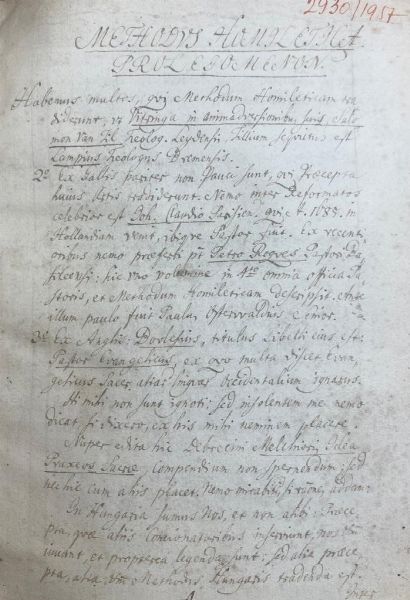 2930/1957
METHODVS HOMILETICae
PROLEGOMENON.
Habemus multos, qvi Methodum Homileticam tra
diderunt, Vitringa in animadversionibus suis, Salo
mon Van Til Theolog. Leydensis. Illum seqvutus est
Lampius Theologus Bremensis.
2o Ex Gallis pariter non pauci sunt, qvi Præcepta
hujus Artis tradiderunt. Nemo inter Reformatos
celebrior est Joh. Claudio Parisien. qvi A. 1685. in
Hollandiam venit, ibiqve Pastor fuit. Ex recenti
oribus nemo præferri pt Petro Roqves Pastori Ba
sileensi: hic uno volumine in 4to omnia officia Pa
storis, et Methodum Homileticam descripsit. Ante
illum paulo fuit Paulus Ostervaldius Senior.
3o Ex Anglis Dovlesius, titulus Libelli ejus est:
Pastor Evangelicus, ex qvo multa discet Evan
gelicus Sacer, etiamsi lingvar Occidentalium ignarus.
Hi mihi non sunt ignoti; sed insolentem me nemo
dicat, si dixero, ex his mihi neminem placere.
Nuper edita hic Debrecini Melchioris Idea
Praxeos Sacræ, Compendium non spernendum; sed
nec hic cum aliis placet. Nemo mirabitur, si rationem addam.
In Hungaria sumus Nos, et non alibi: Præce
pta, qvæ aliis Concionatoribus inserviunt, nos
juvant, et propterea legenda sunt; sed alia præce
pta, alia Methodus Hungaris tradenda est.
inter